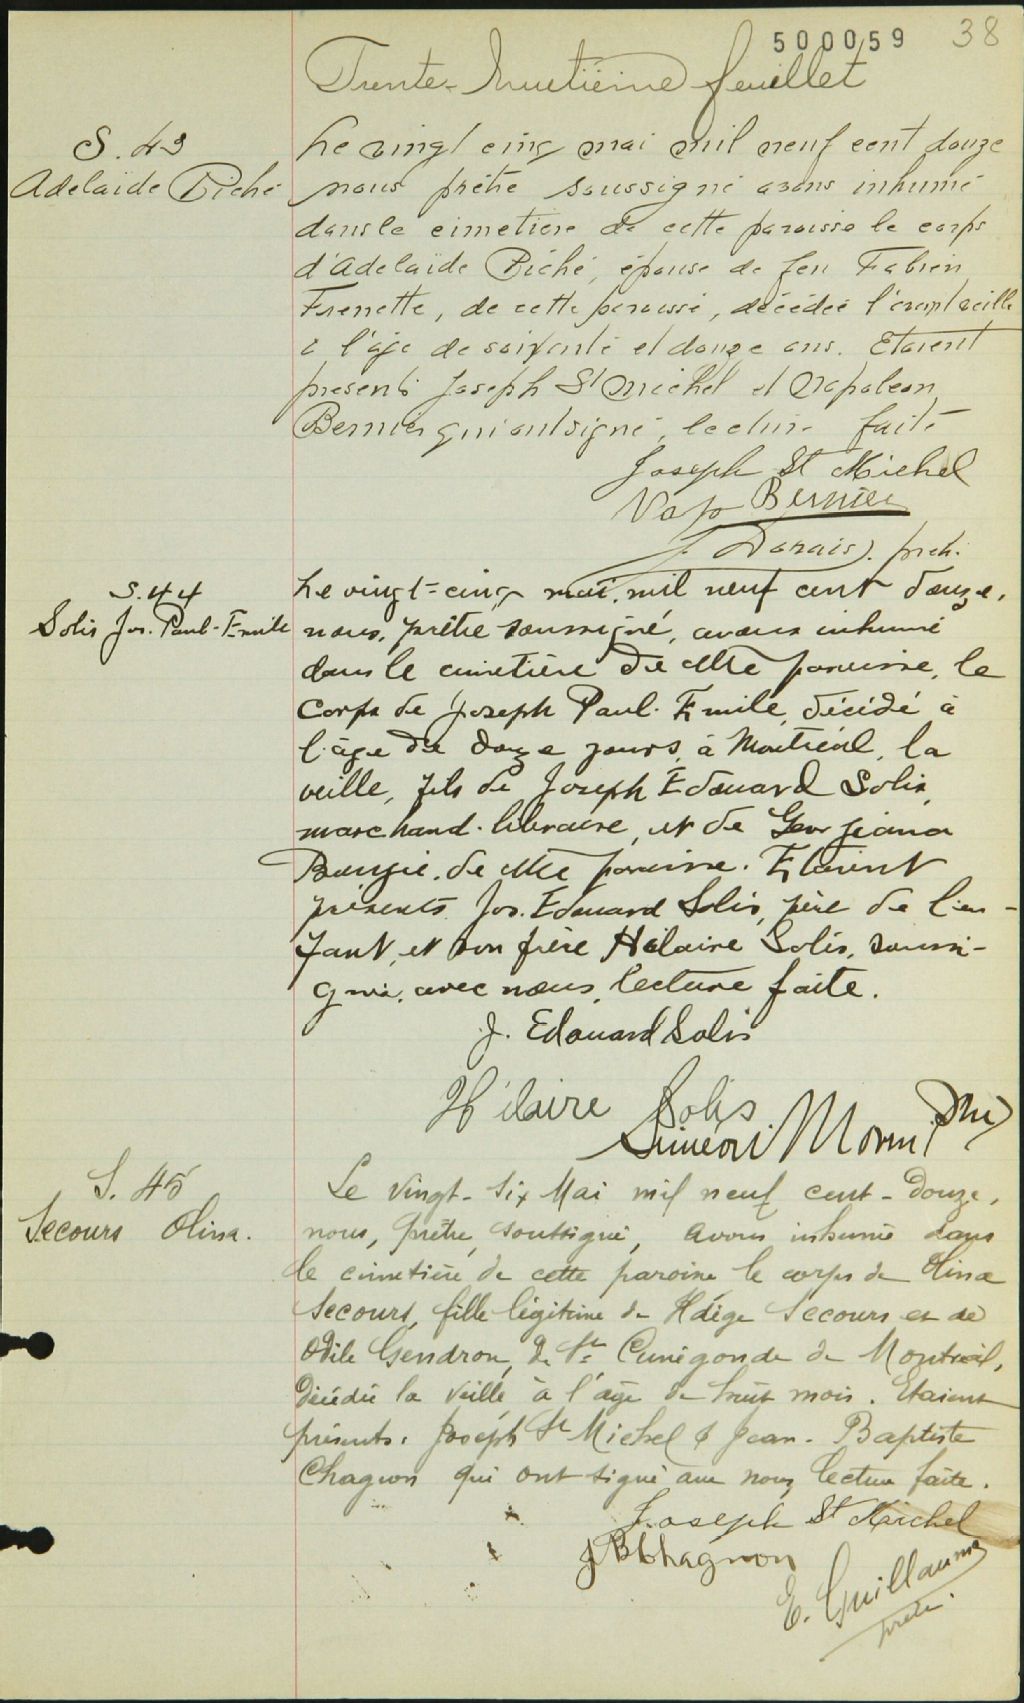 500059 38
Trente-huitième feuillet
S. 43
Adelaïde Piché
Le vingt cinq mai mil neuf cent douze
nous prêtre soussigné avons inhumé
dans le cimetière de cette paroisse le corps
d'Adelaïde Piché, épouse de feu Fabien
Frenette, de cette paroisse, décédée l'avant veille
à l'âge de soixante et douze ans. Etaient
presents Joseph St Michel et Napoleon
Bernier qui ont signé, lecture faite
Joseph St Michel
Nap Bernier
J Danais. ptre.
S. 44
Solis Jos. Paul-Emile
Le vingt-cinq mai, mil neuf cent douze,
nous, prêtre soussigné, avons inhumé
dans le cimetière de cette paroisse, le
corps de Joseph Paul-Emile, décédé à
l'âge de douze jours, à Montréal, la
veille, fils de Joseph Édouard Solis,
marchand-libraire, et de Georgiana
de cette paroisse. Etaient
présents Jos. Édouard Solis, père de l'en-
fant, et son frère Hilaire Solis, soussi-
gnés, avec nous, lecture faite.
J. Edouard Solis
Hilaire Solis
Siméon Morin Ptre
S. 45
Secours Olina.
Le vingt-six Mai mil neuf cent-douze,
nous, prêtre, soussigné, avons inhumé dans
le cimetière de cette paroisse le corps de Olina
Secours, fille légitime de Secours et de
Odile Gendron, de Ste Cunégonde de Montréal,
décédée la veille, à l'âge de huit mois. Etaient
présents: Joseph St Michel & Jean-Baptiste
Chagnon qui ont signé avec nous, lecture faite.
Joseph St Michel
J B Chagnon
E. Guillaume
ptre.